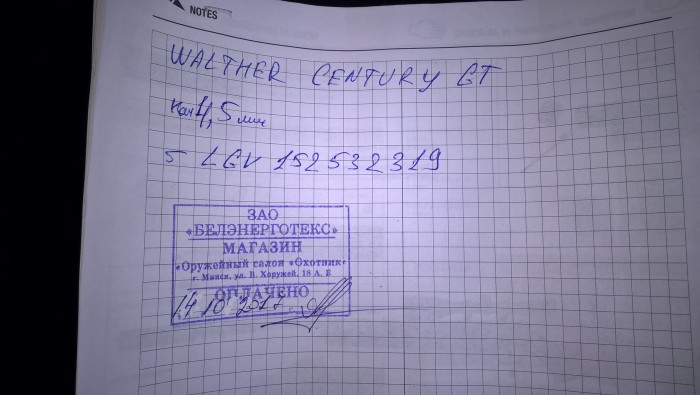 NOTES
WALTHER CENTURY GT
Кал 4,5 мм
5 LGV 152532319
ЗАО
«БЕЛЭНЕРГОТЕКС»
МАГАЗИН
«Оружейный салон «Охотник»
г. Минск, ул. В. Хоружей, 18 А, Б
ОПЛАЧЕНО
14 10 2017